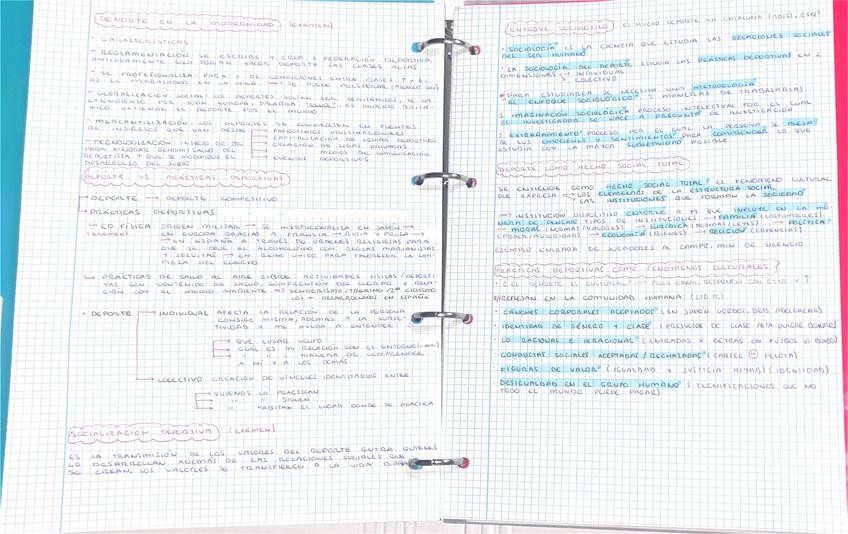 DEPORTE EN LA MODERNIDAD (EXAMEN)
- CARACTERÍSTICAS
- REGLAMENTACIÓN SE ESCRIBE Y CREA 1 FEDERACIÓN DEPORTIVA.
ANTIGUAMENTE SOLO PODÍAN HACER DEPORTE LAS CLASES ALTAS
- SE PROFESIONALIZA PARA DE CONDICIONES ENTRE CLASES
- GLOBALIZACIÓN SOCIAL: LOS DEPORTES SOLÍAN SER BRITÁNICOS, SE VA
EXTENDIENDO POR TODA EUROPA. EL IMPERIO BRITÁ-
NICO EXTIENDE EL DEPORTE POR EL MUNDO
- MERCANTILIZACIÓN: LOS DEPORTES SE CONVIERTEN EN FUENTES
DE INGRESOS QUE VAN DESDE
PATROCINIOS MULTINACIONALES
CAPITALIZACIÓN DE EQUIPOS DEPORTIVOS
CREACIÓN DE LIGAS PRIVADAS
" " MEDIOS DE COMUNICACIÓN
EVENTOS DEPORTIVOS
- TECNOLOGIZACIÓN
PARA MEJORAR
DEPORTISTA Y QUE SE MODIFIQUE EL
DESARROLLO DEL JUEGO
DEPORTE VS PRÁCTICAS DEPORTIVAS
DEPORTE → DEPORTE COMPETITIVO
PRÁCTICAS DEPORTIVAS
ED FÍSICA ORIGEN MILITAR → SE INSTITUCIONALIZA EN JAPÓN →
(EXAMEN) EN EUROPA GRACIAS A FRANCIA → →
→ EN ESPAÑA A TRAVÉS DE ÓRDENES RELIGIOSAS PARA
QUE SE DEJE EL ALCOHOLISMO CON REGLAS MARIANISTAS
Y JESUITAS → EN REINO UNIDO PARA FAVORECER LA LIM-
PIEZA DEL CUERPO
PRÁCTICAS DE SALUD AL AIRE LIBRE: ACTIVIDADES FÍSICAS/DEPORTI-
VAS CON CONTENIDO DE SALUD, COMPRENSIÓN DEL CUERPO Y RELA-
CIÓN CON EL MEDIO AMBIENTE → SENDERISMO/TREKING
LOS + DESARROLLADOS EN ESPAÑA
• DEPORTE
INDIVIDUAL AFECTA LA RELACIÓN DE LA PERSONA
CONSIGO MISMA, ADEMÁS A LA SUBJE-
TIVIDAD Y ME AYUDA A ENTENDER:
QUE LUGAR OCUPO
CUÁL ES MI RELACIÓN CON EL ENTORNO
" " " MANERA DE COMPRENDER
A MÍ Y A LOS DEMÁS
COLECTIVO CREACIÓN DE VÍNCULOS IDENTITARIOS ENTRE
QUIENES LO PRACTICAN
" " SIGUEN
" HABITAN EL LUGAR DONDE SE PRACTICA
SOCIALIZACIÓN DEPORTIVA (EXAMEN)
ES LA TRANSMISIÓN DE LOS VALORES DEL DEPORTE ENTRE QUIENES
LO DESARROLLAN ADEMÁS DE LAS RELACIONES SOCIALES QUE
SE CREAN. LOS VALORES SE TRANSFIEREN A LA VIDA DIARIA
ENFOQUE SOCIOLÓGICO EL HECHO DEPORTE EN CATALUÑA
- SOCIOLOGÍA ES LA CIENCIA QUE ESTUDIA LAS RELACIONES SOCIALES
DEL SER HUMANO
- LA SOCIOLOGÍA DEL DEPORTE ESTUDIA LAS PRÁCTICAS DEPORTIVAS EN 2
DIMENSIONES → INDIVIDUAL
→ COLECTIVO
PARA ESTUDIARLA SE NECESITA UNA METODOLOGÍA
"EL ENFOQUE SOCIOLÓGICO" 2 MANERAS DE TRABAJARLAS
1 IMAGINACIÓN SOCIOLÓGICA PROCESO INTELECTUAL POR EL CUAL
EL INVESTIGADOR SE HACE 1 PREGUNTA DE INVESTIGACIÓN
2 EXTRAÑAMIENTO PROCESO POR EL CUAL LA PERSONA SE ALEJA
DE SUS EMOCIONES Y SENTIMIENTOS PARA COMPRENDER LO QUE
ESTUDIA CON LA MAYOR SUBJETIVIDAD POSIBLE
DEPORTE COMO HECHO SOCIAL TOTAL
SE ENTIENDE COMO "HECHO SOCIAL TOTAL" EL FENÓMENO CULTURAL
QUE EXPRESA → LOS ELEMENTOS DE LA ESTRUCTURA SOCIAL
→ LAS INSTITUCIONES QUE FORMAN LA SOCIEDAD
→ INSTITUCIÓN DISPOSITIVO EXTERNO A TI QUE INFLUYE EN LA MA-
NERA DE PENSAR. TIPOS DE INSTITUCIONES → FAMILIA (COSTUMBRES)
→ MORAL (NORMAS/VALORES) → JURÍDICA (NORMAS/LEYES) → POLÍTICA
(PODER/AUTORIDAD) → ECONOMÍA (BIENES) → RELIGIÓN (CREENCIAS)
EJEMPLO ENTRADA DE JUGADORES AL CAMPO, MIN DE SILENCIO
PRÁCTICAS DEPORTIVAS COMO FENÓMENOS CULTURALES
- ¿EL DEPORTE ES CULTURAL?
EXPRESAN EN LA COMUNIDAD HUMANA:
- CÁNONES CORPORALES ACEPTADOS (EN JAPÓN GORDOS, ADELGAZAR)
- IDENTIDAD DE GÉNERO Y CLASE (PREJUICIOS DE CLASE ALTA QUIERE BOXEAR)
- LO RACIONAL E IRRACIONAL (ENTRADAS X DETRÁS EN FÚTBOL VS BOXEO)
- CONDUCTAS SOCIALES ACEPTADAS/RECHAZADAS (CARTEL ⊖ PELOTA)
- FIGURAS DE VALOR (IGUALDAD Y JUSTICIA HIYAB) (IDENTIDAD)
- DESIGUALDAD EN EL GRUPO HUMANO (TECNIFICACIONES QUE NO
TODO EL MUNDO PUEDE PAGAR)